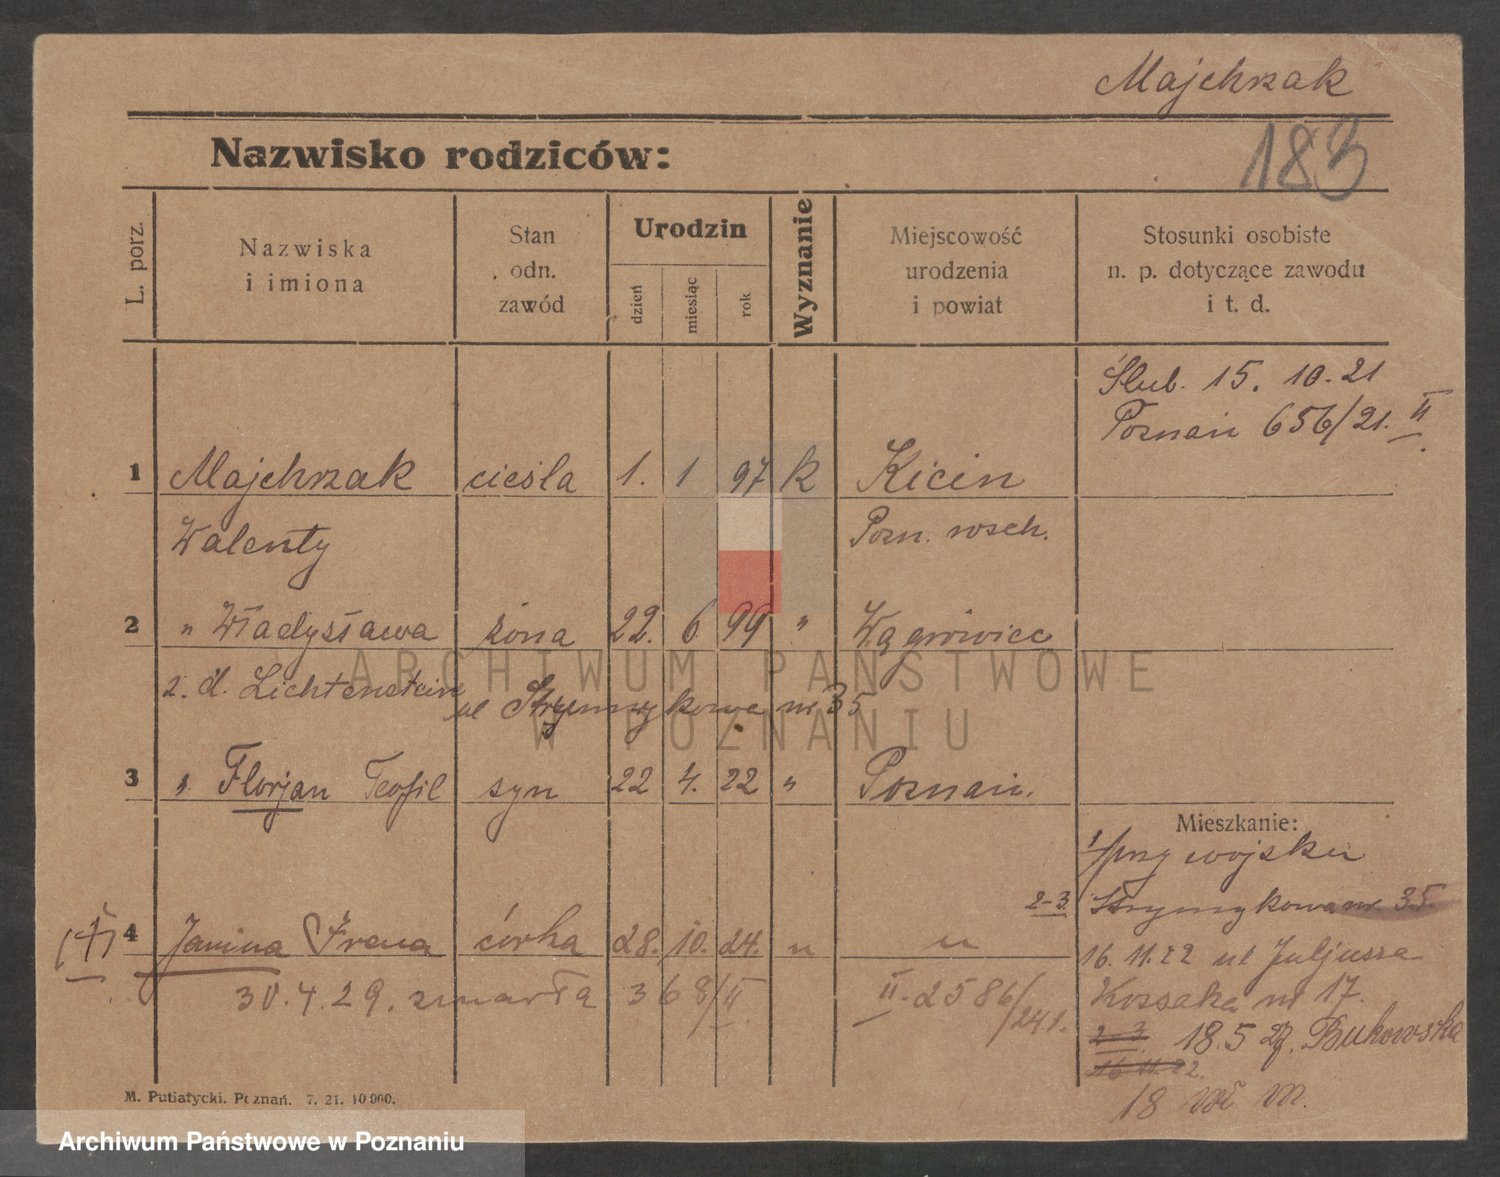 Majchrzak
183
Nazwisko rodziców:
L. porz.
Nazwiska
i imiona
Stan
odn.
zawód
Urodzin
dzień
miesiąc
rok
Wyznanie
Miejscowość
urodzenia
i powiat
Stosunki osobiste
n. p. dotyczące zawodu
i t. d.
Ślub. 15. 10. 21
Poznań 656/21. II
1 Majchrzak cieśla 1. 1 97 k Kicin
Walenty Pozn. wsch.
2 " Władysława żona 22. 6. 99 " Wągrowiec
z. d. Lichtenstein ul Strumykowa nr. 35
3 " Florjan Teofil syn 22 4. 22 " Poznań.
Mieszkanie:
1/ przy wojsku
2-3 Strumykowa nr. 35.
(+) 4 Janina Irena córka 28. 10. 24. " "
16. 11. 22 ul Juljusza
30. 4. 29. zmarła 368/II II. 2586/241.
Kossaka nr 17.
2-3 18.5 27. Bukowska
16 11. 22.
18 m.
M. Putiatycki. Poznań. 7. 21. 10 000.
ARCHIWUM PAŃSTWOWE
W POZNANIU
Archiwum Państwowe w Poznaniu